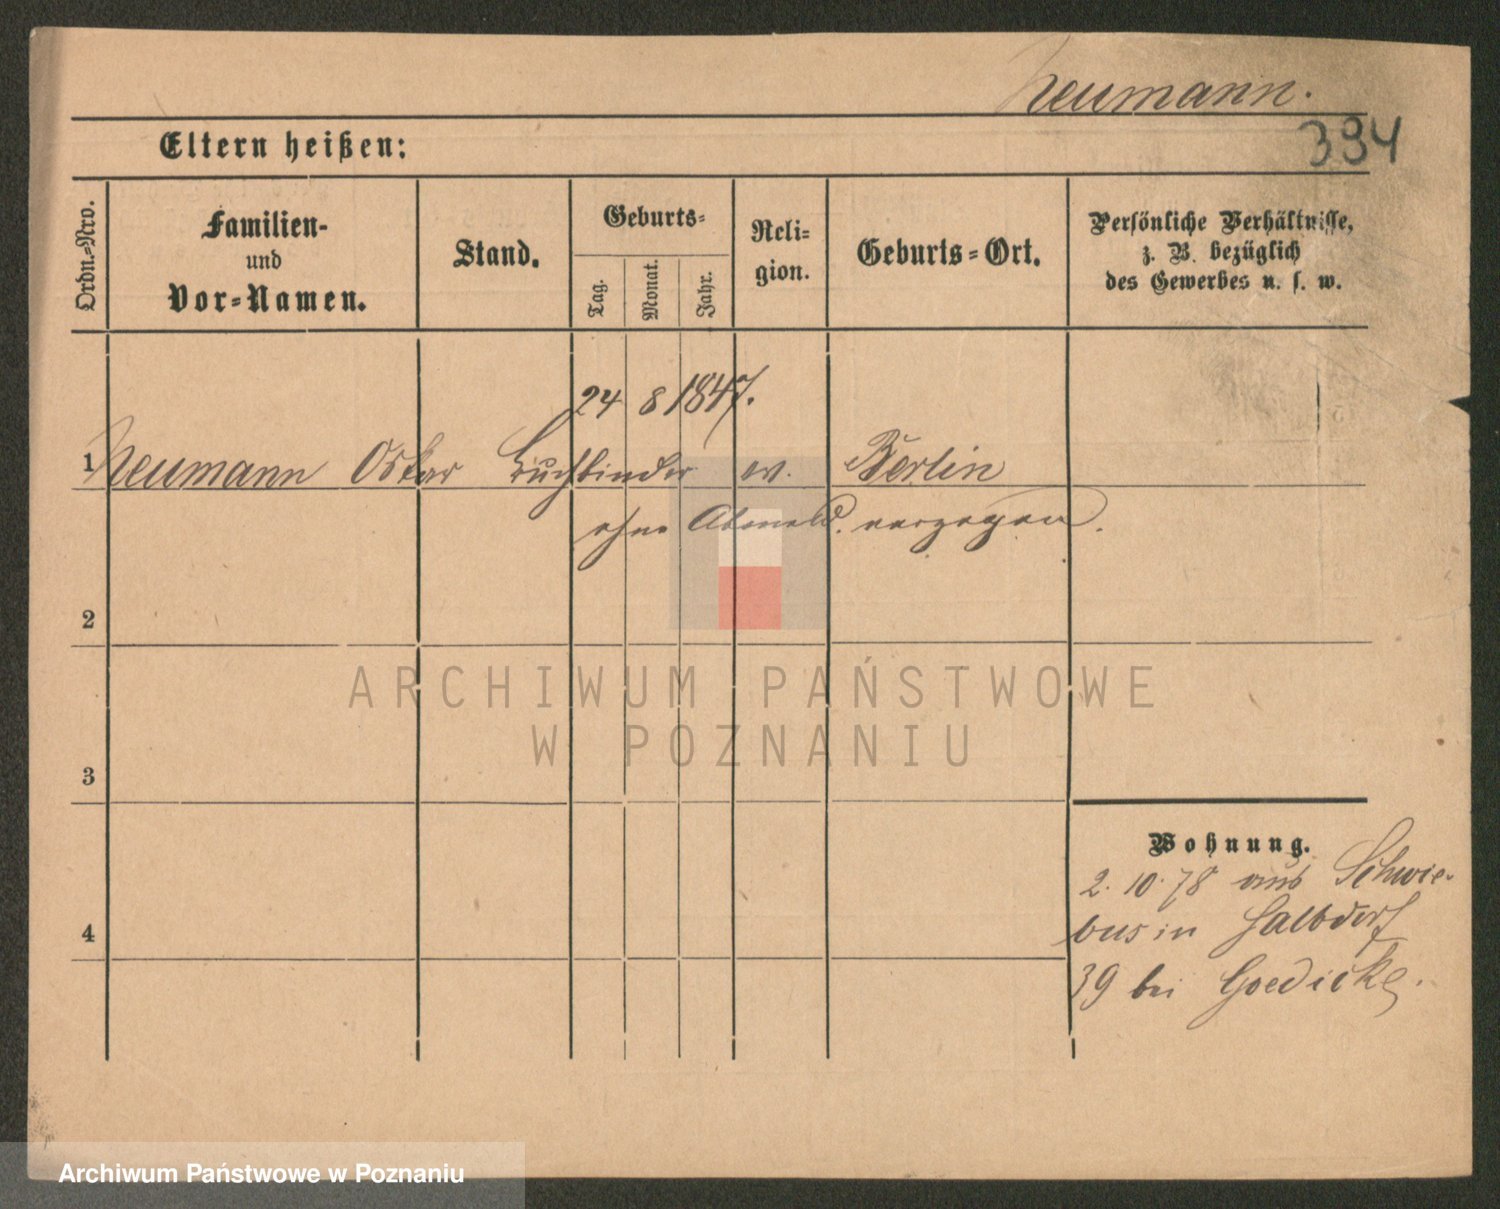 Neumann.
394
Eltern heißen:
Ordn.=Nro.
Familien-
und
Vor=Namen.
Stand.
Geburts=
Tag.
Monat.
Jahr.
Reli=
gion.
Geburts=Ort.
Persönliche Verhältnisse,
z. B. bezüglich
des Gewerbes u. s. w.
24 8 1847.
1 Neumann Oskar Buchbinder ev. Berlin
ohne Abmeld. verzogen.
2
3
4
Wohnung.
2. 10. 78 aus Schwie-
bus in Halbdorf
39 bei Goedicke.
ARCHIWUM PAŃSTWOWE
W POZNANIU
Archiwum Państwowe w Poznaniu